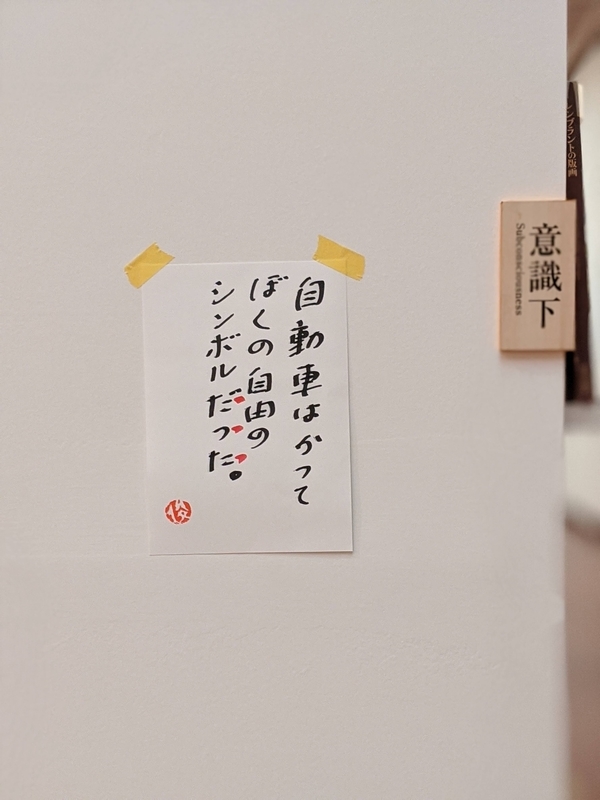 自動車はかつて
ぼくの自由の
シンボルだった。
俊
意識下
Subconsciousness
レンブラントの版画